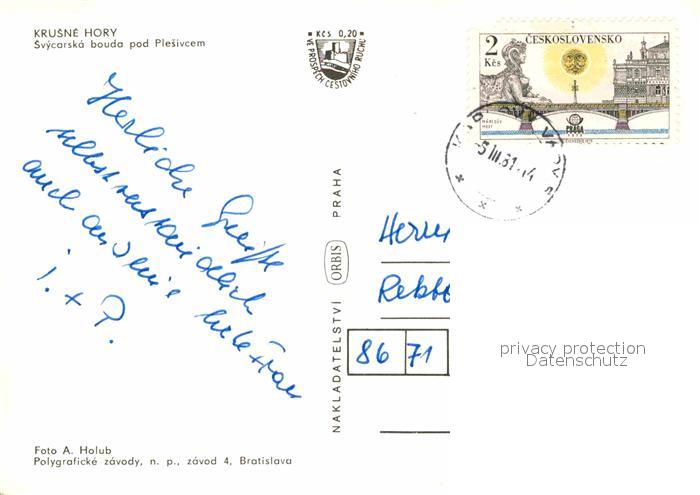 KRUŠNÉ HORY
Švýcarská bouda pod Plešivcem
Kčs 0,20
VE PROSPĚCH CESTOVNÍHO RUCHU
2 Kčs
ČESKOSLOVENSKO
MÁNESŮV MOST
PRAHA
-5.III.81-14
Herzliche Grüße
selbstverständlich
auch an Deine liebe Frau
J. + P.
NAKLADATELSTVÍ ORBIS PRAHA
Herrn
86 71
privacy protection
Datenschutz
Foto A. Holub
Polygrafické závody, n. p., závod 4, Bratislava